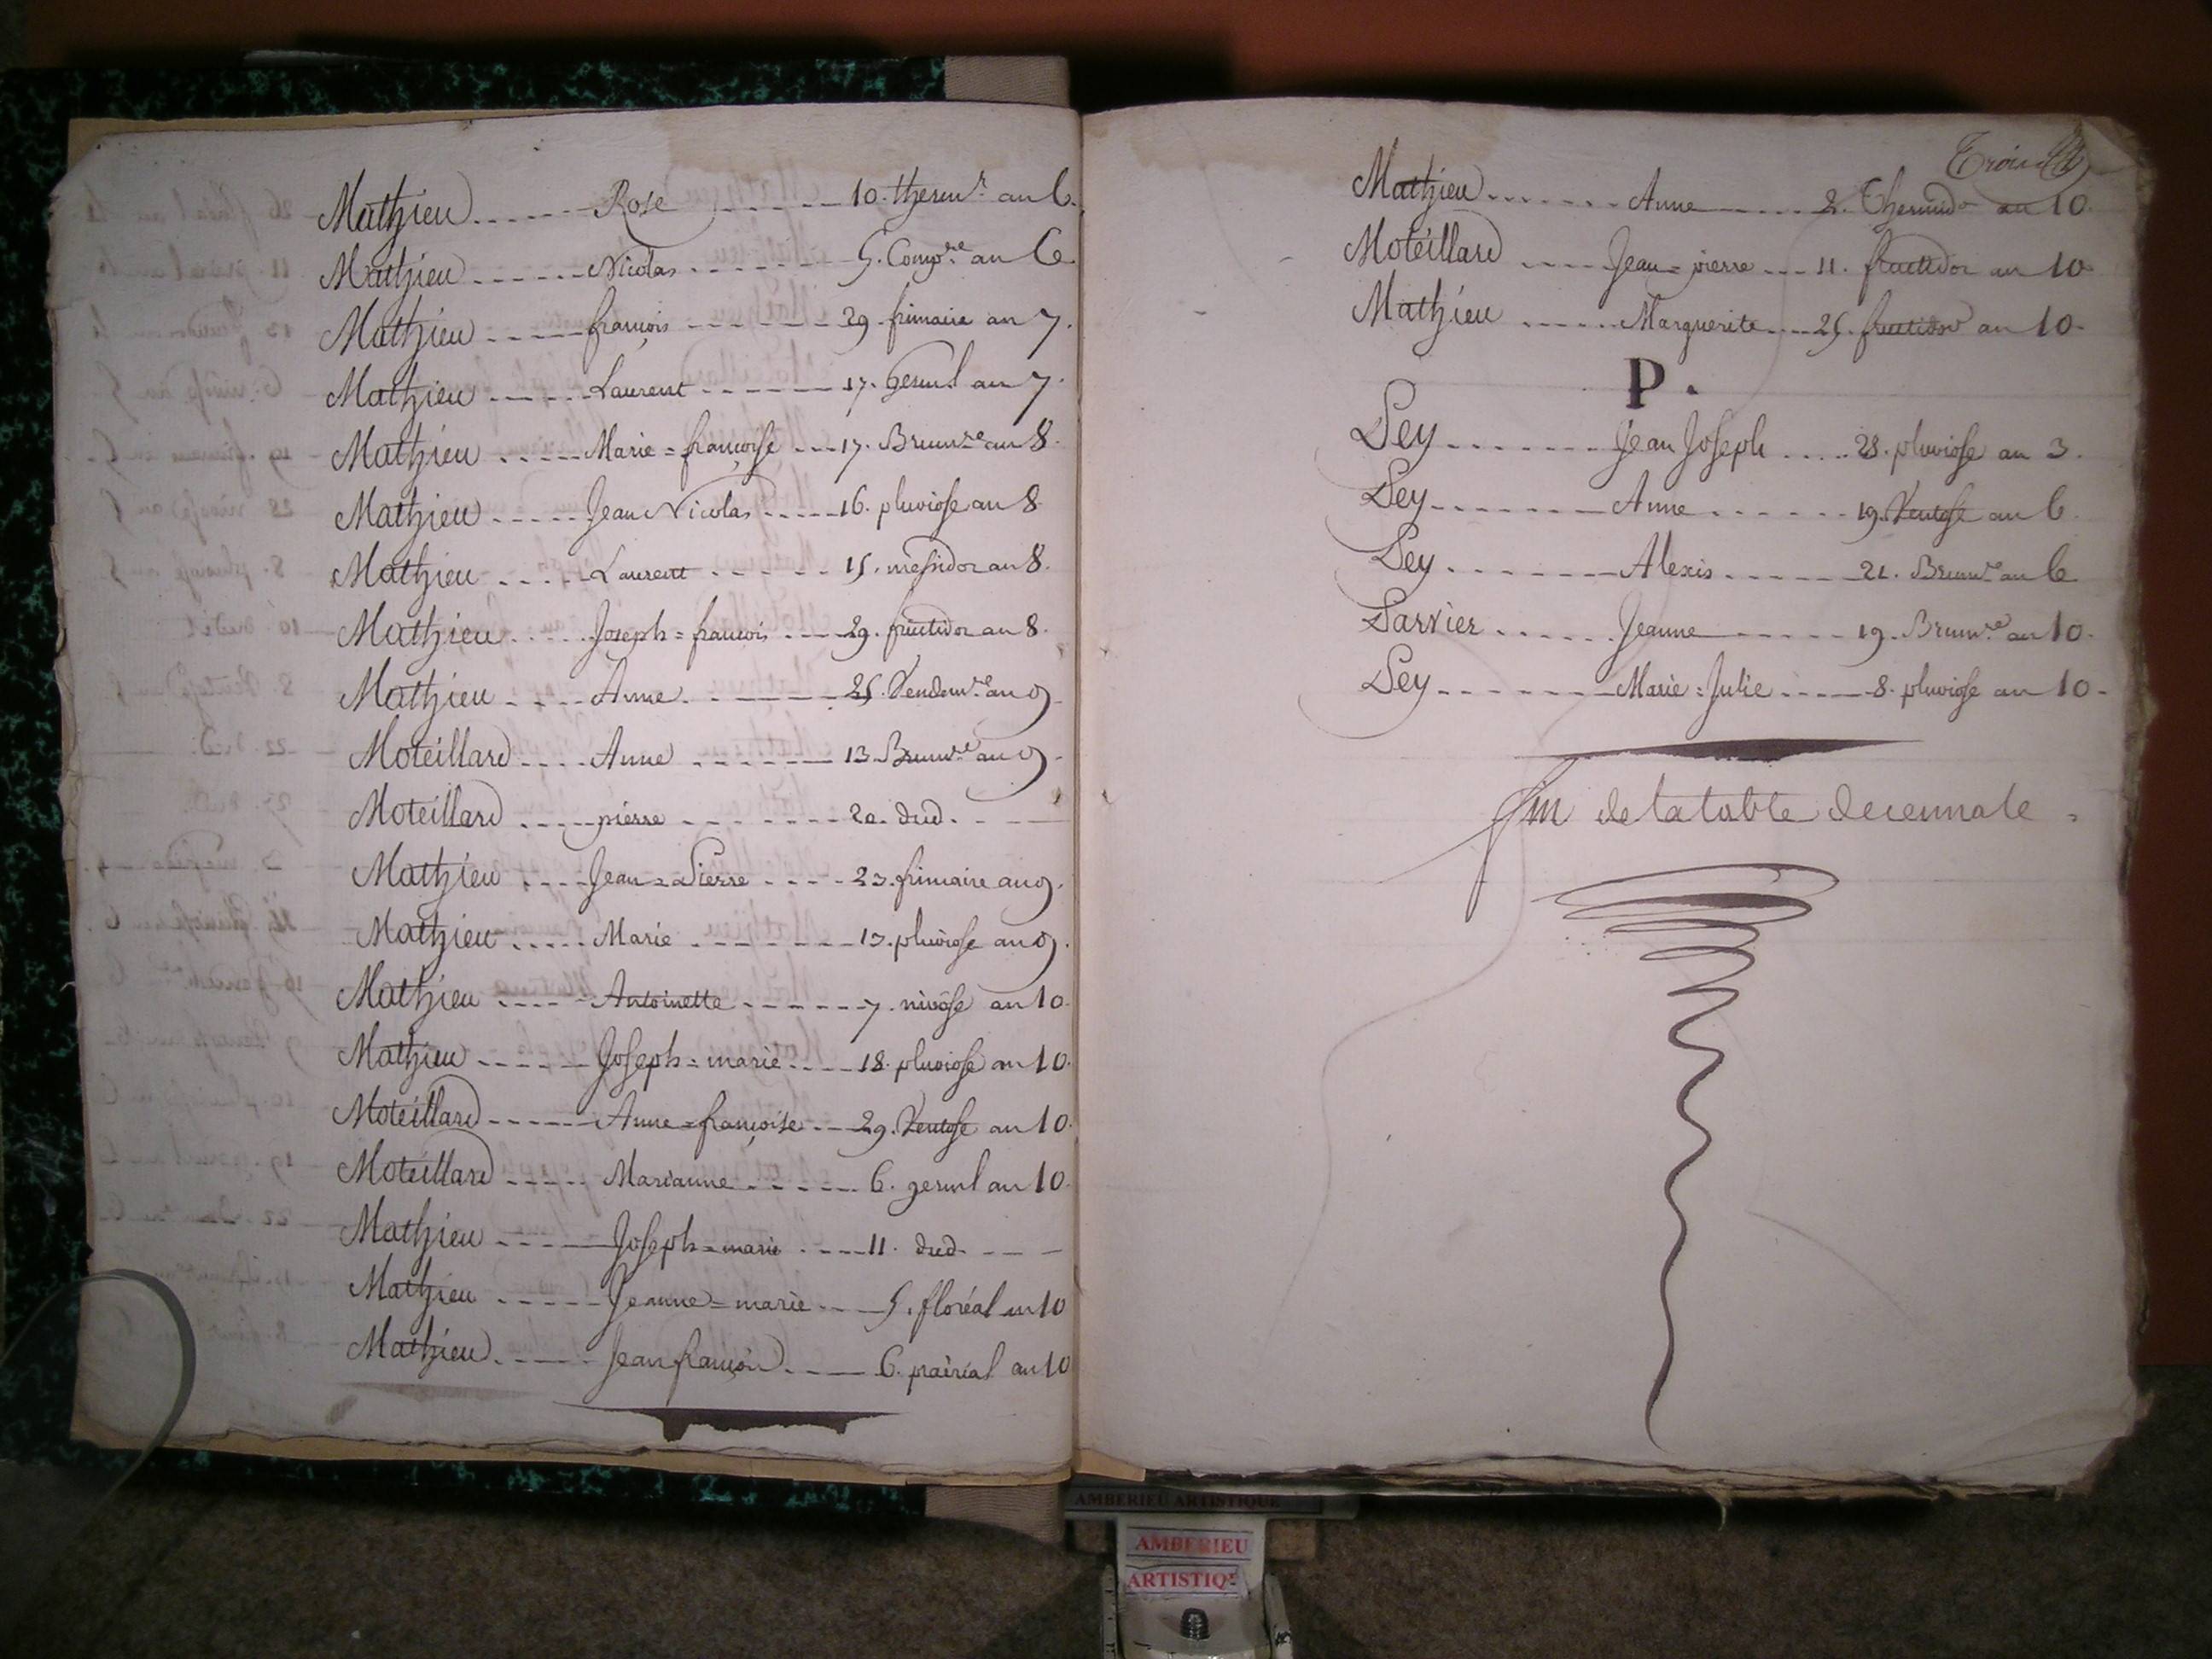 Mathieu ...... Rose ...... 10. thermr. an 6.
Mathieu ...... Nicolas ...... 5. Compre. an 6.
Mathieu ...... françois ...... 29. frimaire an 7.
Mathieu ...... Laurent ...... 17. germl an 7.
Mathieu ...... Marie=françoise ... 17. Brumre. an 8.
Mathieu ...... Jean Nicolas ...... 16. pluviose an 8.
Mathieu ..... Laurent ...... 15. messidor an 8.
Mathieu ..... Joseph=françois .... 29. fructidor an 8.
Mathieu .... Anne ...... 25. Vendemre. an 9
Moteillard .... Anne ...... 13. Brumre. an 9.
Moteillard .... pierre ...... 20. dud. ...
Mathieu .... Jean=Pierre .... 23. frimaire an 9.
Mathieu ..... Marie ...... 13. pluviose an 9.
Mathieu .... Antoinette ...... 7. nivôse an 10.
Mathieu ..... Joseph=marie .... 18. pluviose an 10.
Moteillard ...... Anne=françoise .... 29. Ventose an 10.
Moteillard ..... Marianne ...... 6. germl an 10.
Mathieu ..... Joseph=marie .... 11. dud. ...
Mathieu ..... Jeanne=marie .... 5. floréal an 10
Mathieu ..... Jean françois .... 6. prairial an 10
Mathieu ....... Anne ...... 2. Thermidor an 10.
Moteillard .... Jean=pierre ... 11. fructidor an 10.
Mathieu ..... Marguerite .... 25. fructidor an 10.
P.
Pey ....... Jean Joseph .... 28. pluviose an 3.
Pey ....... Anne ...... 19. Ventose an 6.
Pey ....... Alexis ...... 21. Brumre. an 6
Parvier ..... Jeanne ...... 19. Brumre. an 10.
Pey ....... Marie=Julie .... 8. pluviose an 10.
fin de la table decennale.
AMBERIEU ARTISTIQUE
AMBERIEU
ARTISTIQUE